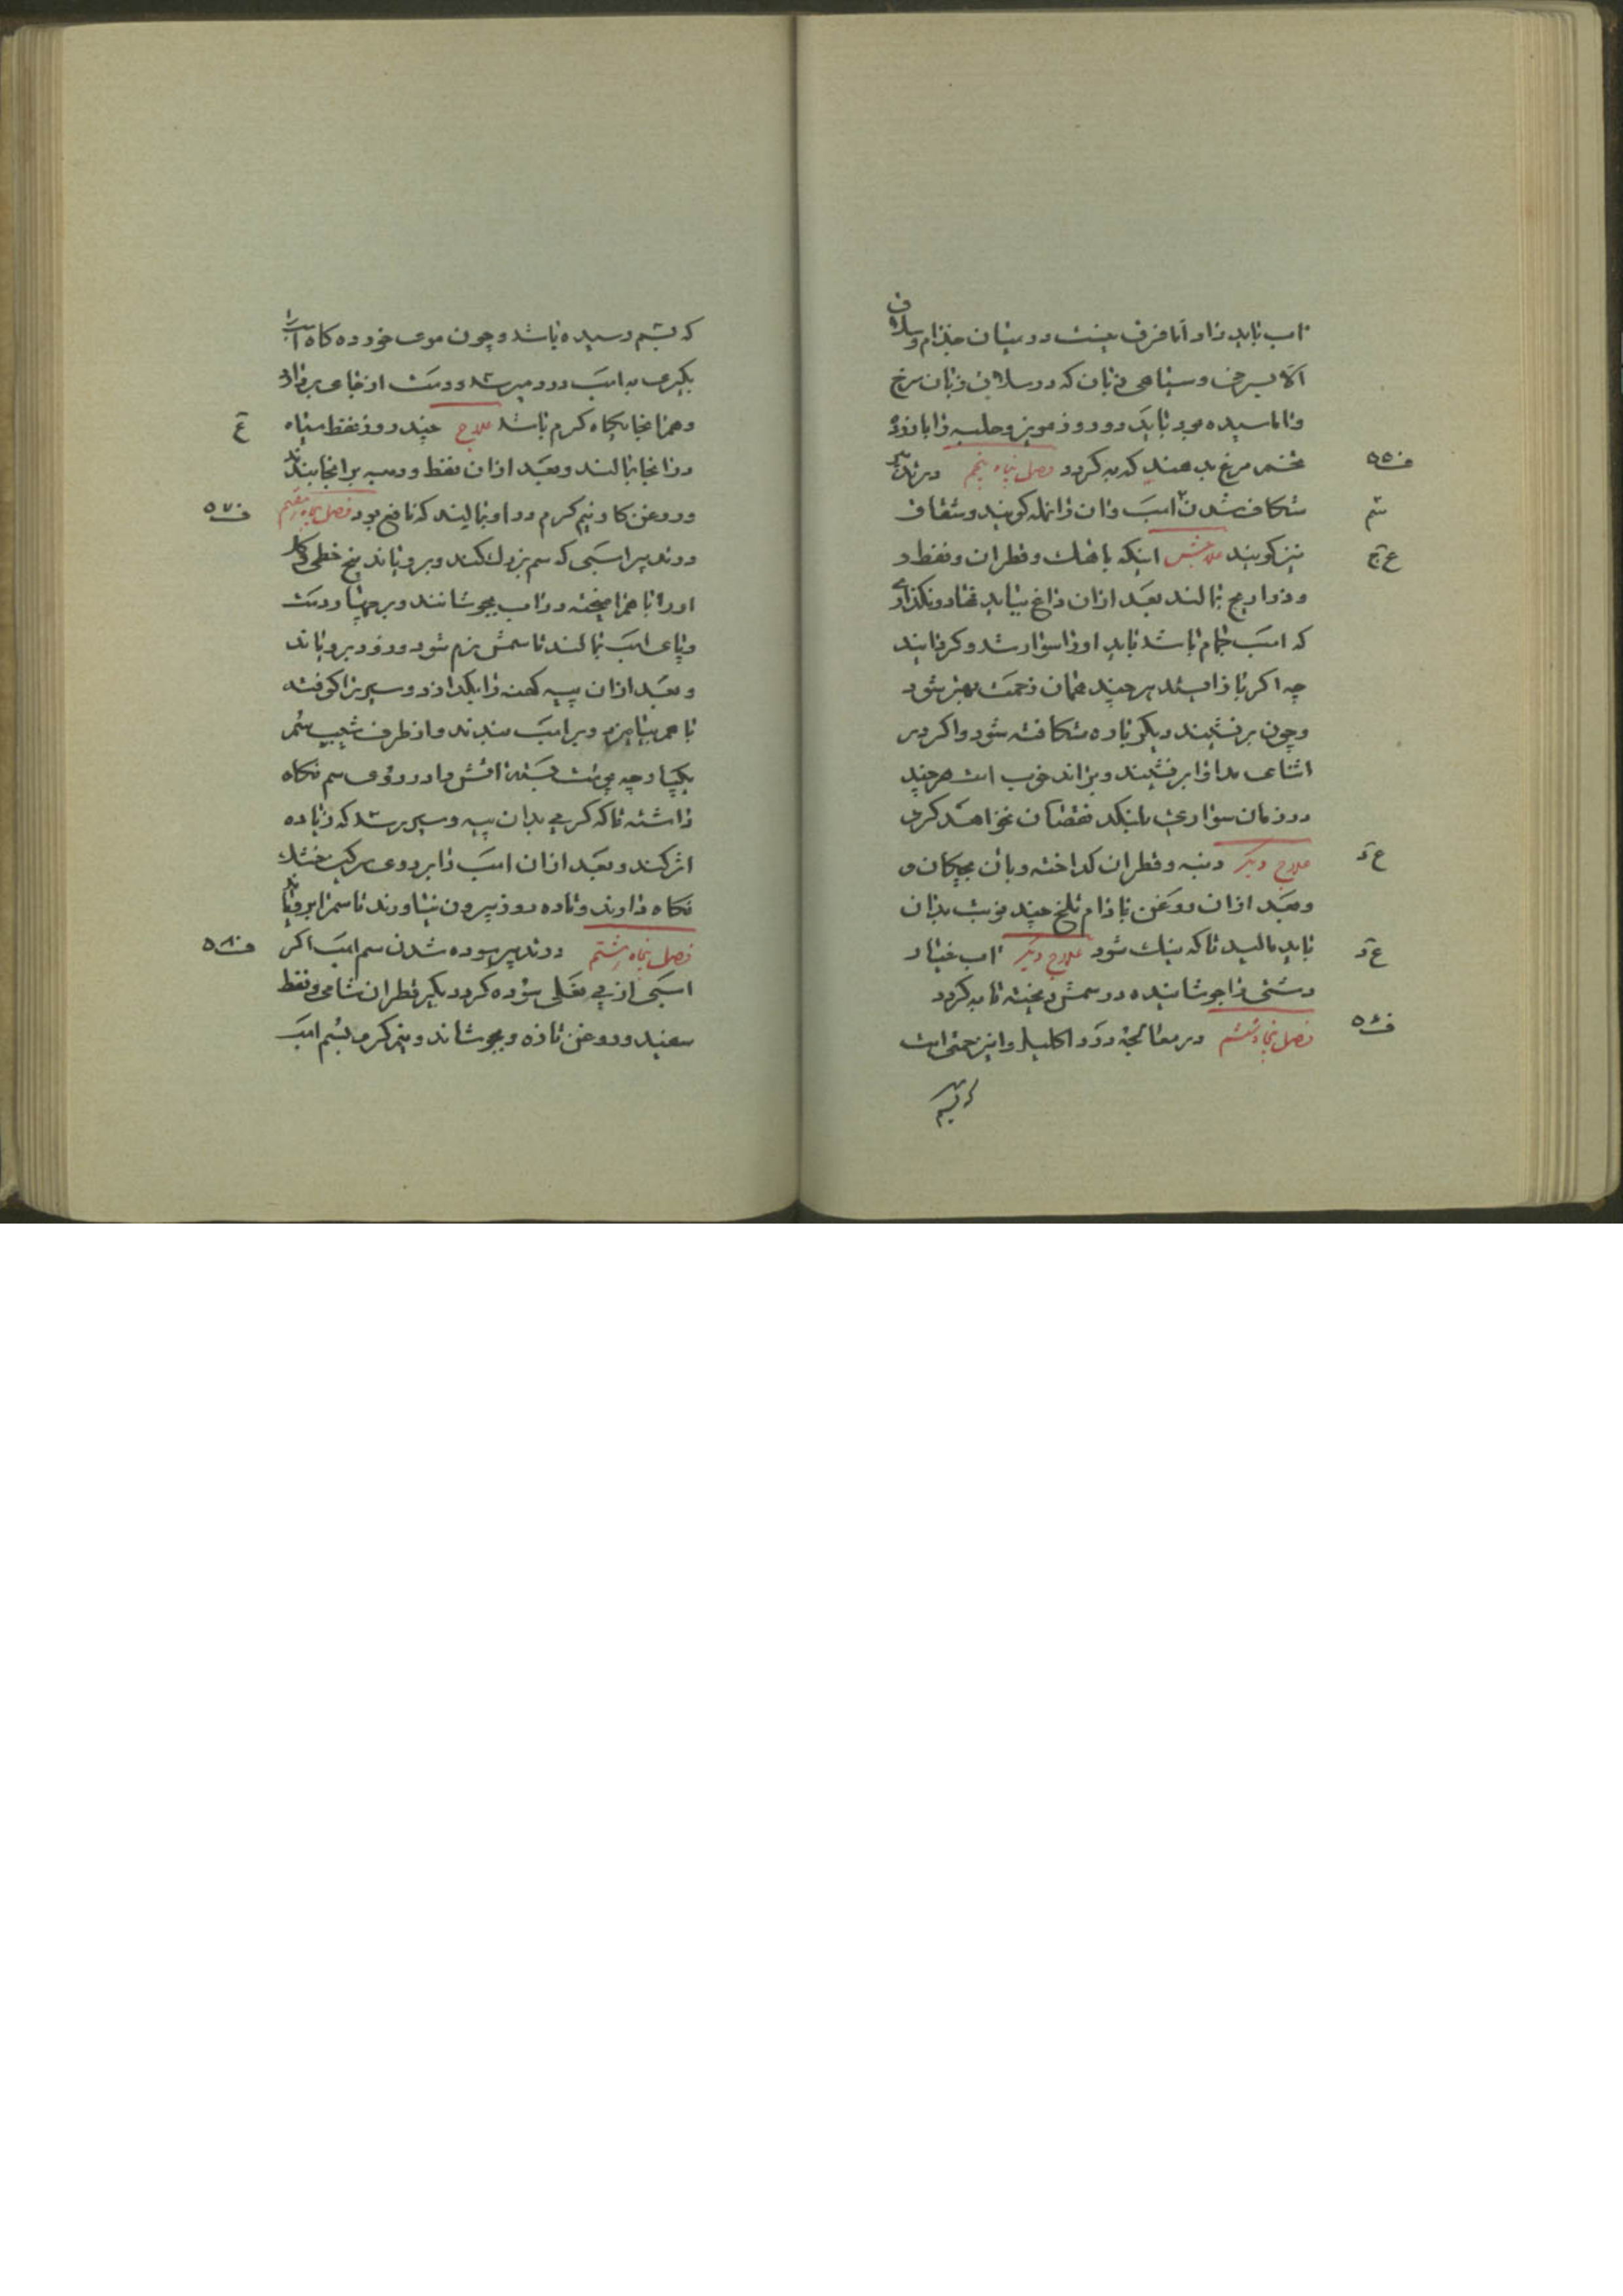 آب باید داد اما فرق نیست در میان جذام و سلاق
الا بسرخی و سیاهی زبان که در سلاق زبان سرخ
و اماسیده بود باید دو روز مویز و حلبه را با زرده
تخم مرغ بدهند که به گردد فصل پنجاه پنجم در تدبیر
ف ۵۵
شکاف شدن اسب و ان را نمله گویند و شقاق
نیز گویند علاجش اینکه باهک و قطران و نفط و
و زراریح بمالند بعد ازان داغ بباید نهاد و نگذارند
که اسب جمام باشد باید او را سوار شد و گردانید
چه اگر باز ایستد هر چند همان زحمت بهتر شود
و چون برنشیند دیگر باره شکافته شود و اگر در
اثنای مداوا برنشیند و براند خوب است هر چند
در زمان سواری بلنگد نقصان نخواهد کرد
علاج دیگر دنبه و قطران گداخته و بان بچکانند
و بعد ازان روغن بادام تلخ چند نوبت بدان
باید مالید تا که نیک شود علاج دیگر آب خیار
دشتی را جوشانیده در سمش ریخته تا به گردد
فصل پنجاه و ششم در معالجه درد اکلیل و این زحمتی است
ف ۵۶
که بسم
که بسم رسیده باشد و چون موی خورده گاه اسب را
بگیری به اسب درد میرسد و دست از جای بردارد
و همانجایگاه گرم باشد علاج چند روز نفط سیاه
ع
در انجا بمالند و بعد ازان نفط و دنبه بر انجا بندند
و روغن گاو نیم گرم در او بمالند که نافع بود فصل پنجاه و هفتم
ف ۵۷
در تدبیر اسبی که سم بزرگ کند و برویاند بیخ خطمی و گل
او را با هم امیخته در آب بجوشانند و بر چهار دست
و پای اسب بمالند تا سمش نرم شود و زود برویاند
و بعد ازان پیه کهنه را بگدازد و سیر را کوفته
با هم بیامیزد و بر اسب ببندند و از طرف شیب سم
بکپارچه چیت بسته اتش را در روی سم نگاه
داشته تا که گرمی بدان پیه و سیر برسد که زیاده
اثر کند و بعد ازان اسب را بر روی سرگین خشک
نگاه دارند و تا ده روز بیرون نیاورند تا سم را برویاند
فصل پنجاه هشتم در تدبیر سوده شدن سم اسب اگر
ف ۵۸
اسبی از بی نعلی سوده گردد بگیر قطران شامی و نفط
سفید و روغن تازه و بجوشاند و نیم گرم بسم اسب